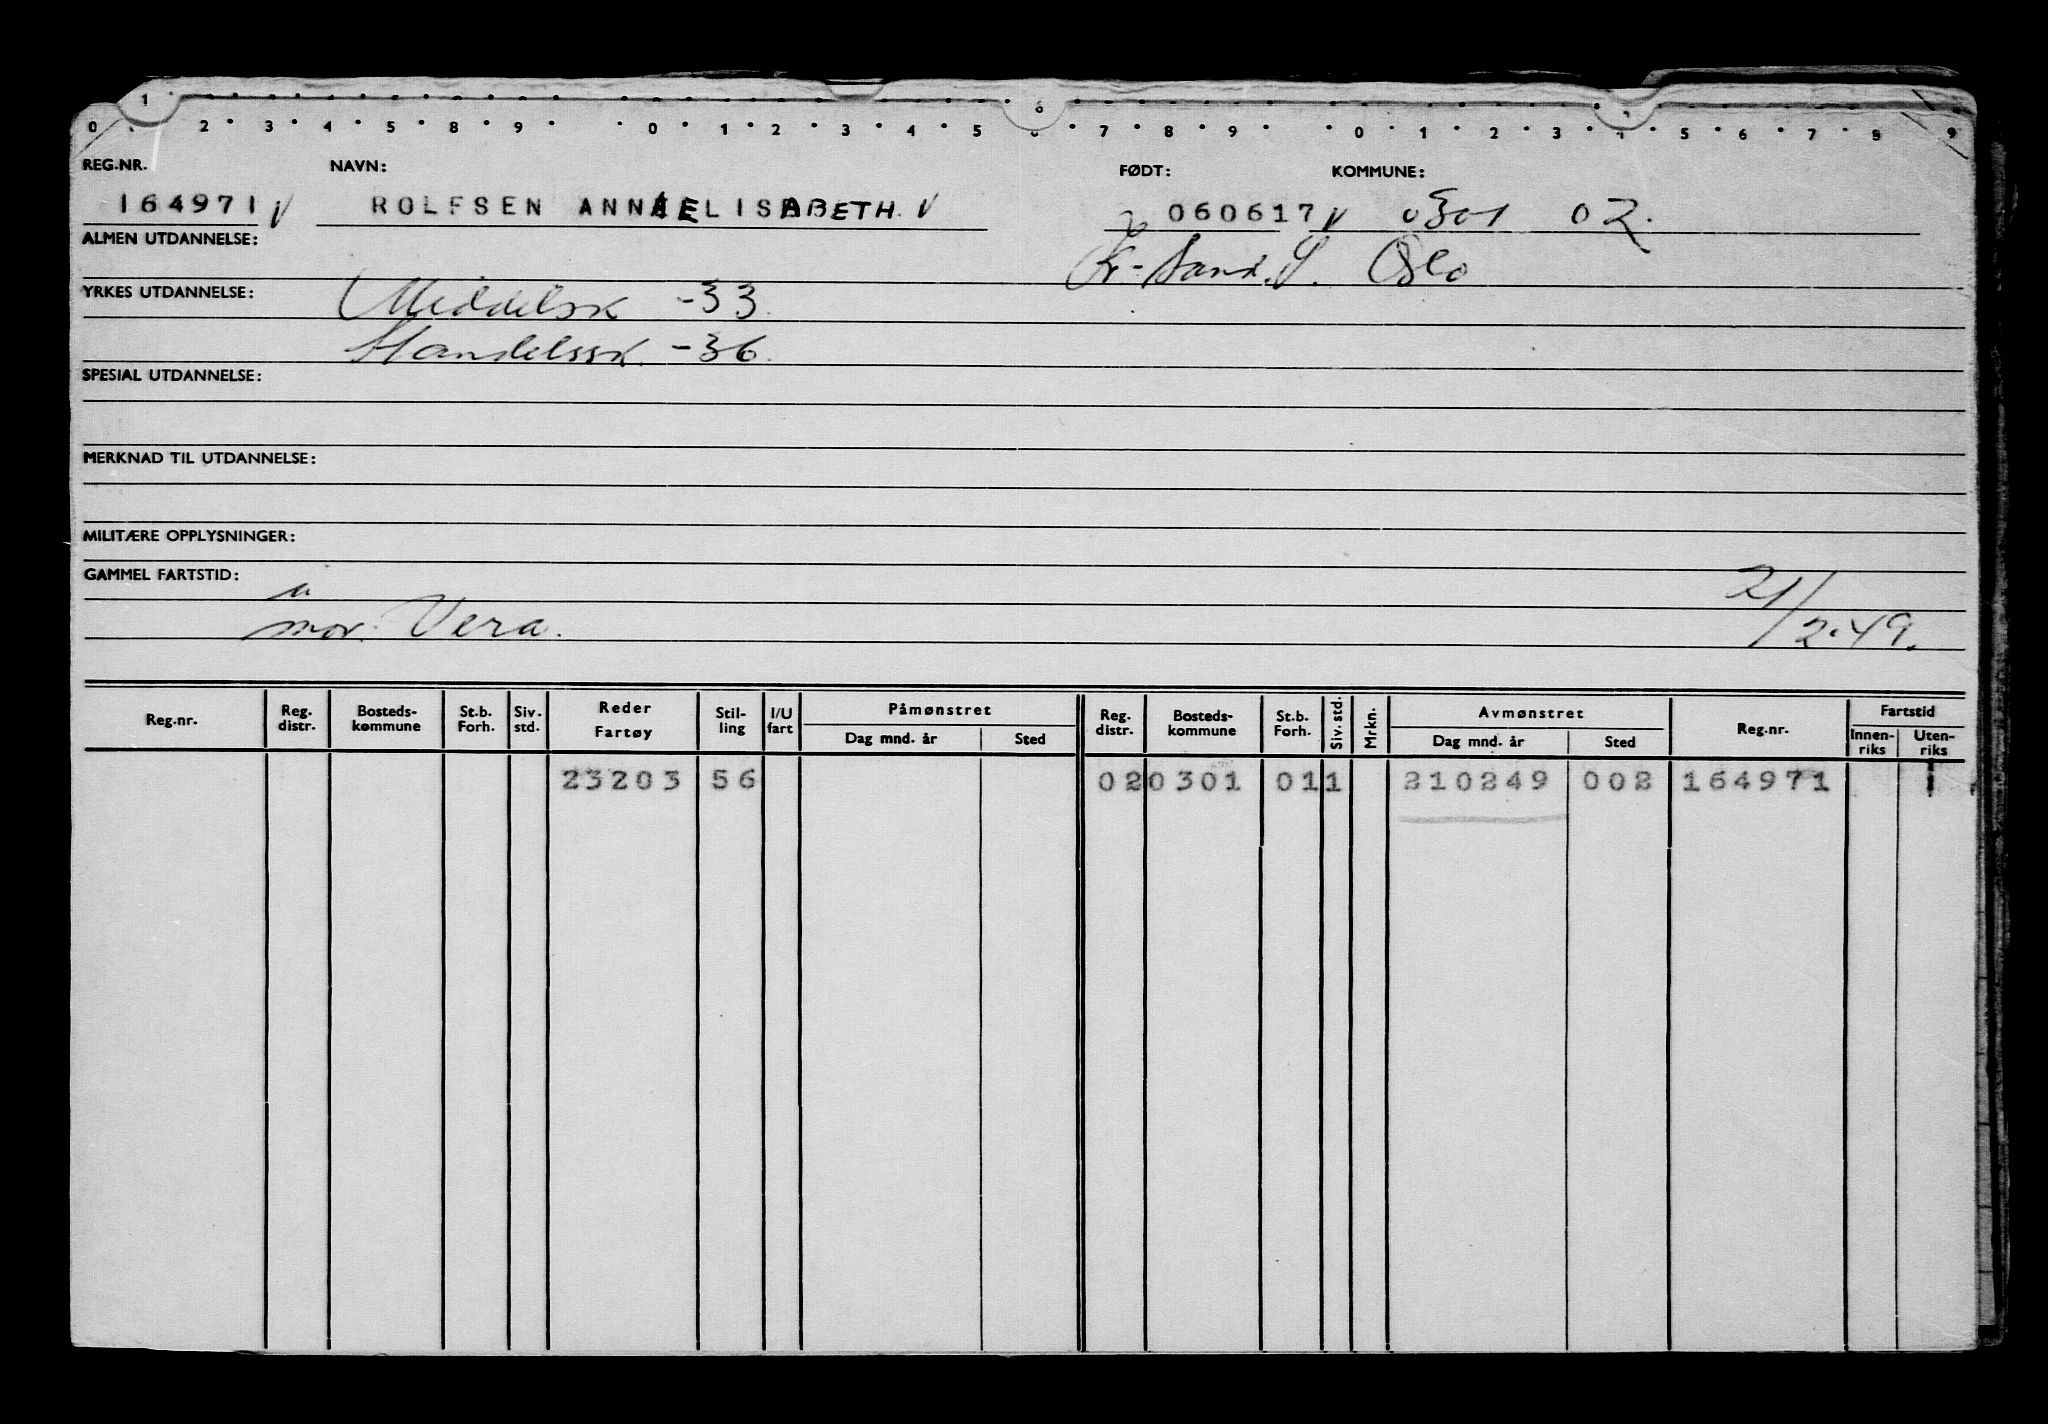 0 1 2 3 4 5 8 9 0 1 2 3 4 5 6 7 8 9 0 1 2 3 4 5 6 7 8 9
REG.NR. NAVN: FØDT: KOMMUNE:
164971 V ROLFSEN ANNE ELISABETH. V 060617 V 0301 02.
ALMEN UTDANNELSE: Kr-Sand. S. Oslo
YRKES UTDANNELSE: Middelsk -33.
Handelssk. -36.
SPESIAL UTDANNELSE:
MERKNAD TIL UTDANNELSE:
MILITÆRE OPPLYSNINGER:
GAMMEL FARTSTID:
mor. Vera. 21/2.49.
Reg.nr. Reg. distr. Bosteds-kommune St.b. Forh. Siv. std. Reder Fartøy Stil-ling I/U fart Påmønstret Reg. distr. Bosteds-kommune St.b. Forh. Siv. std. Mrkn. Avmønstret Reg.nr. Fartstid
Dag mnd. år Sted Dag mnd. år Sted Innen-riks Uten-riks
23203 56 02 0301 01 1 210249 002 164971 1